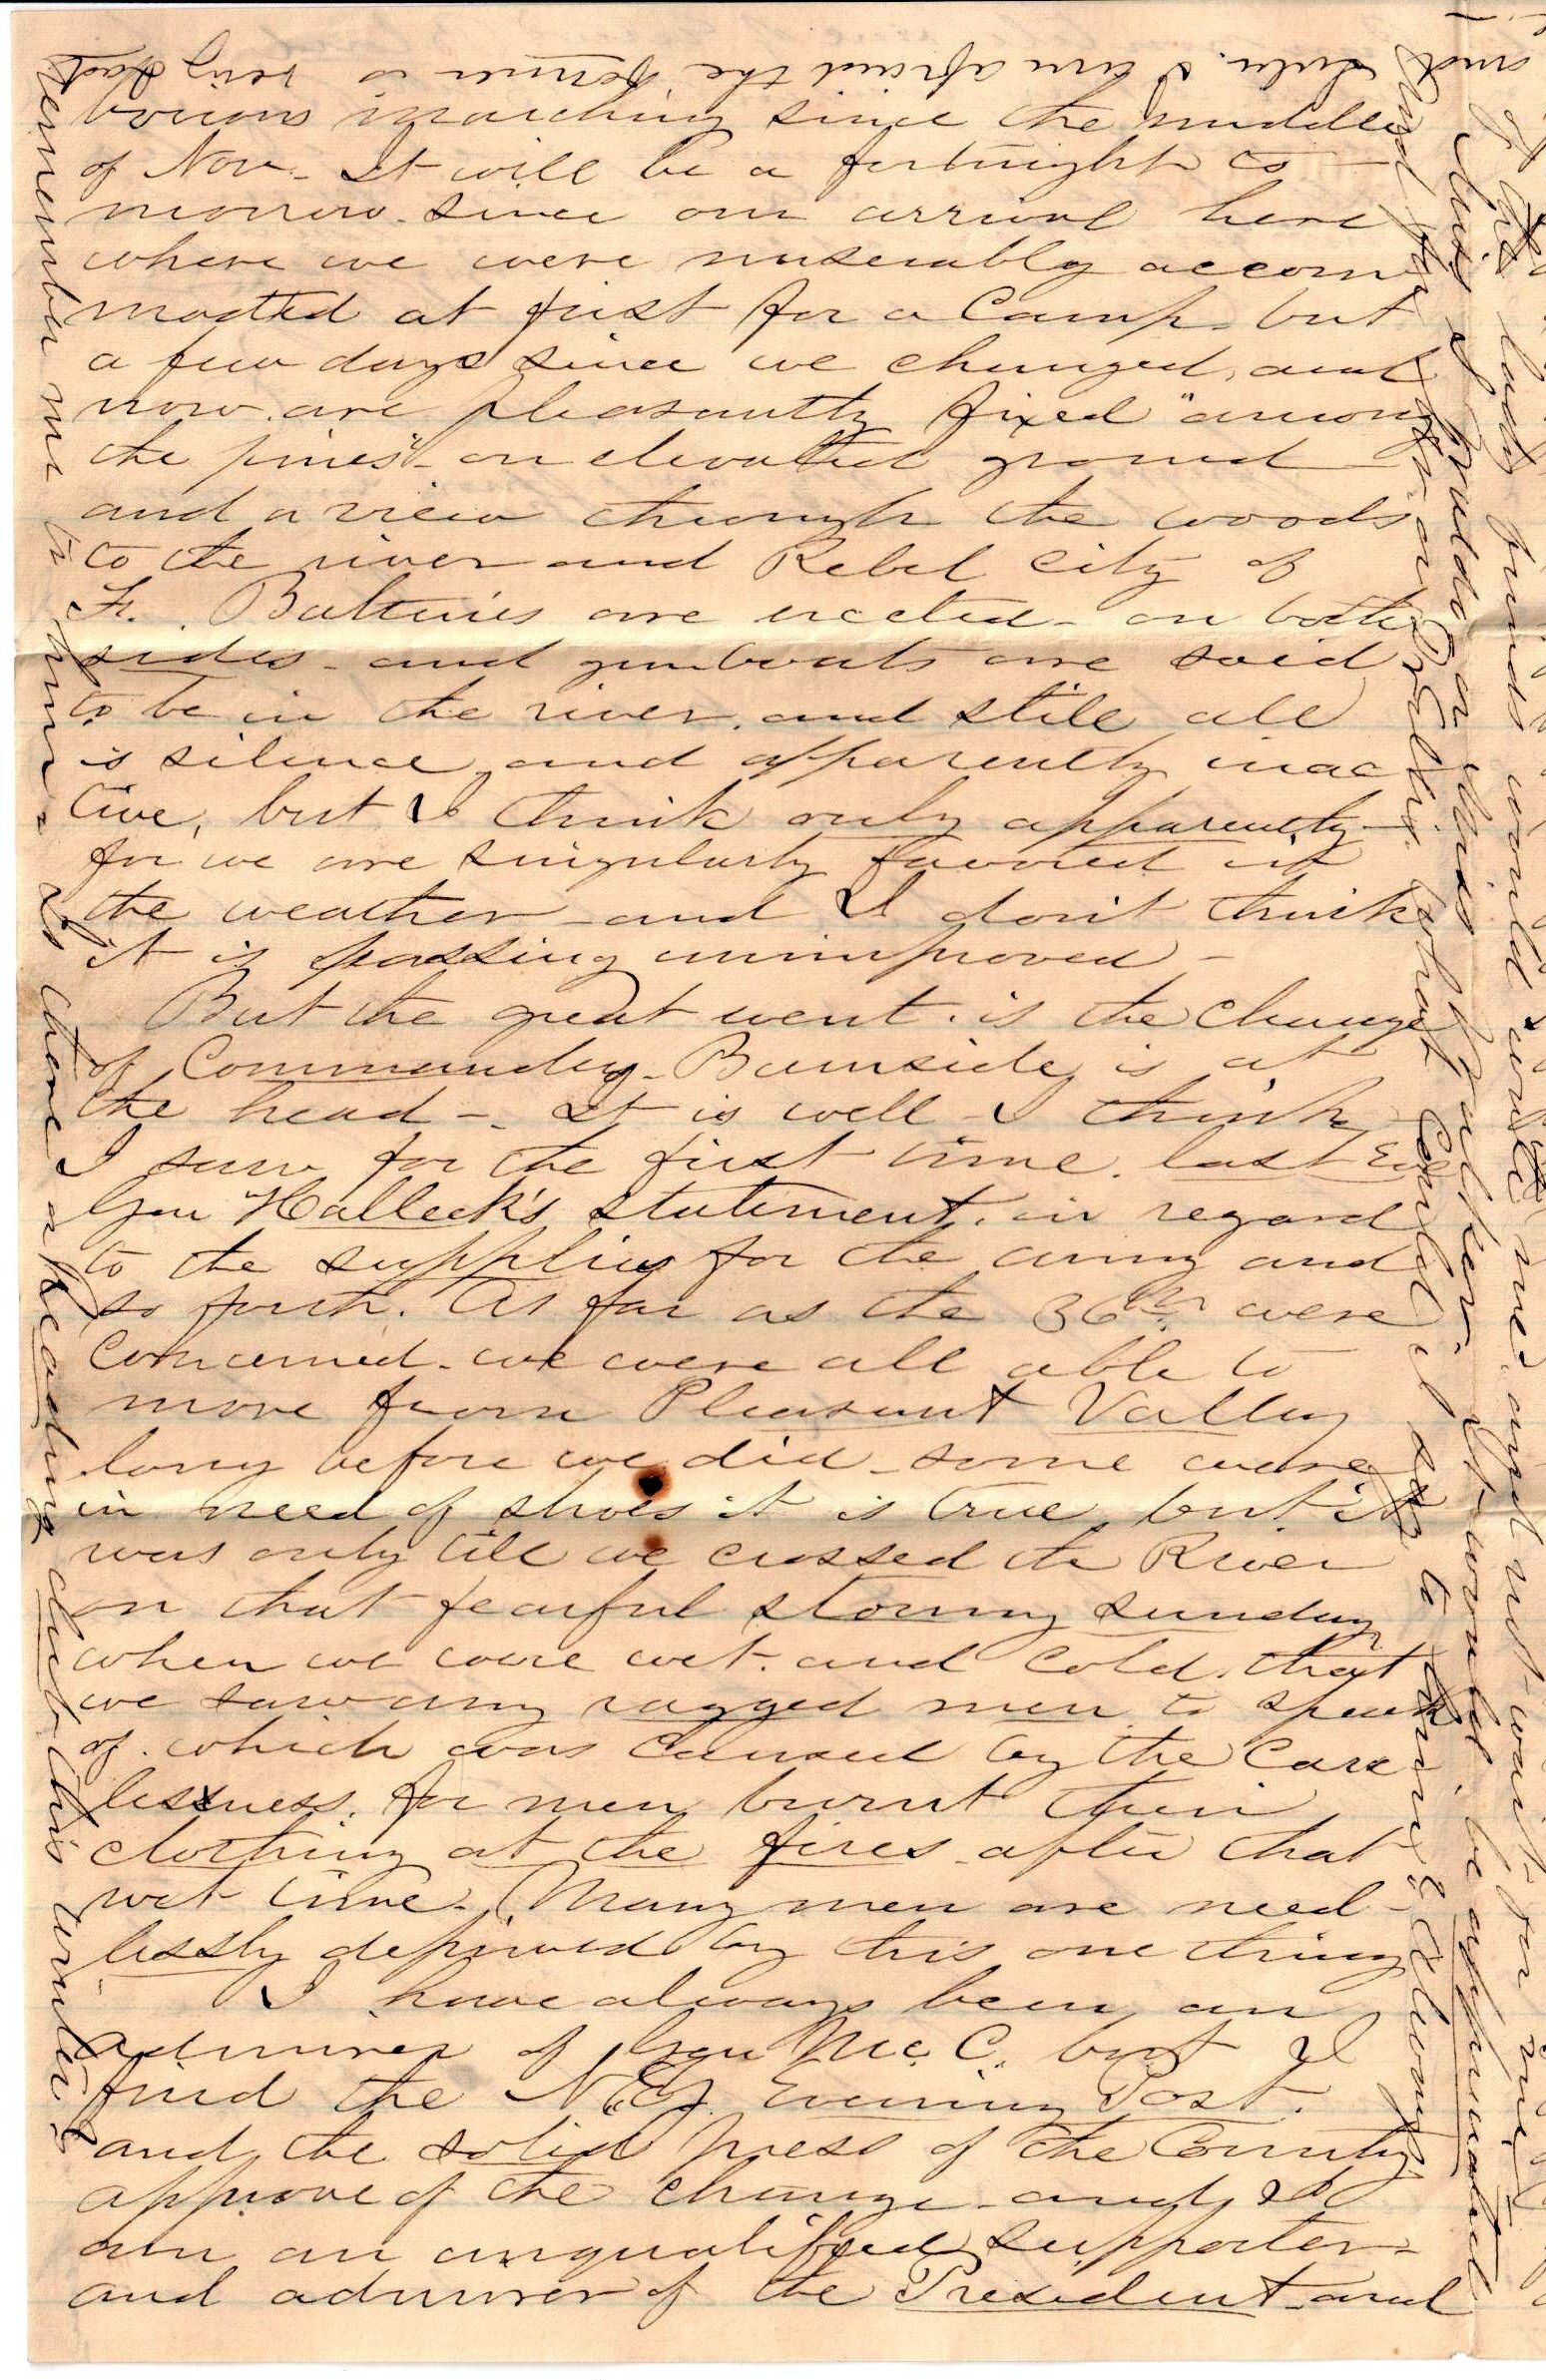 borious marching since the middle
of Nov. It will be a fortnight to
morrow since our arrival here
where we were miserably accom
modted at first for a Camp. but
a few days since we changed, and
now are pleasantly fixed "among
the pines" on elevated ground
and a view through the woods
to the river and Rebel city of
F. Batteries are erected on both
sides and gunboats are said
to be in the river, and still all
is silence and apparently inac
tive, but I think only apparently
for we are singularly favored in
the weather and I don't think
it is passing unimproved -
But the great event. is the change
of Commanders. Burnside is at
the head - It is well I think
I saw for the first time last Eve
Gen Halleck's statement. in regard
to the supplies for the army and
so forth. As far as the 36th were
concerned. we were all able to
move from Pleasant Valley
long before we did - some were
in need of shoes it is true, but it
was only till we crossed the River
on that fearful stormy sunday
when we were wet. and cold. that
we saw any ragged men to speak
of. which was caused by the care
lessness. for men burnt their
clothing at the fires after that
wet time. Many men are need-
lessly deprived by this one thing
I have always been an
admirer of Gen Mc. C. but I
find the N.Y. Evening Post.
and the solid press of the County
approve of the change - and I
am an unqualified supporter
and admirer of the President and
and Lulu. I am afraid the former is being
remember me to Is there a Reading club this winter?
what could I say to him?
this I would be appreciated
of his lady friends would write me. and not wait for